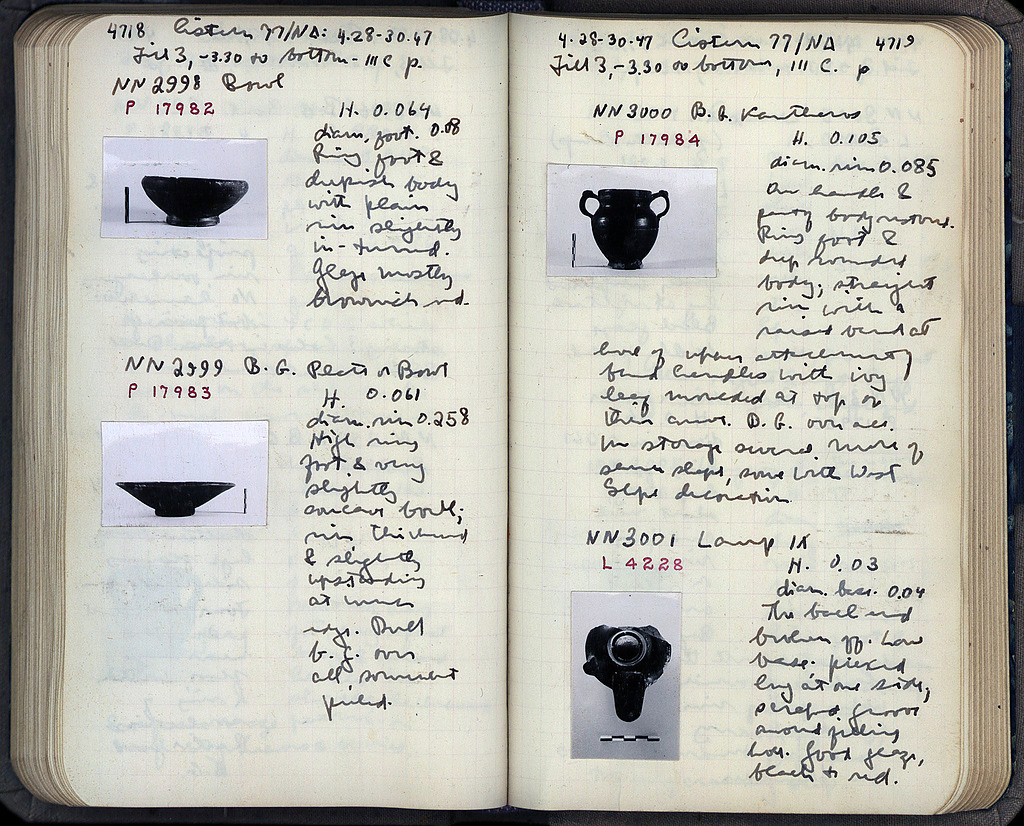 4718 Cistern 77/NA: 4.28-30.47
Fill 3, -3.30 to bottom - III C. p.
NN 2998 Bowl
P 17982
H. 0.064
diam. foot. 0.08
Ring foot &
deepish body
with plain
rim slightly
in-turned.
Glaze mostly
brownish red.
NN 2999 B. G. Plate or Bowl
P 17983
H. 0.061
diam. rim 0.258
High ring
foot & very
slightly
concave bowl;
rim thickened
& slightly
upstanding
at inner
edge. Dull
b. g. over
all somewhat
peeled.
4.28-30.47 Cistern 77/NA 4719
Fill 3, -3.30 to bottom, III C. p
NN 3000 B. G. Kantharos
P 17984
H. 0.105
diam. rim 0.085
One handle &
part of body restored.
Ring foot &
deep rounded
body; straight
rim with a
raised band at
level of upper attachment of
band handles with ivy
leaf moulded at top of
their curve. B. G. over all.
In storage several more of
same shape, some with West
Slope decoration.
NN 3001 Lamp IX
L 4228
H. 0.03
diam. base. 0.04
The back end
broken off. Low
base. pierced
lug at one side,
scraped groove
around filling
hole. Good glaze,
black to red.